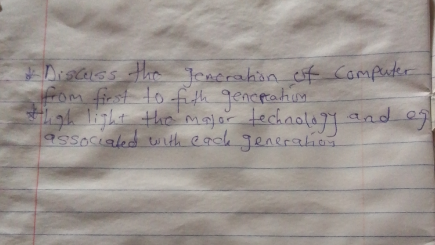 * Discuss the generation of computer
from first to fifth generation
* High light the major technology and eg
associated with each generation